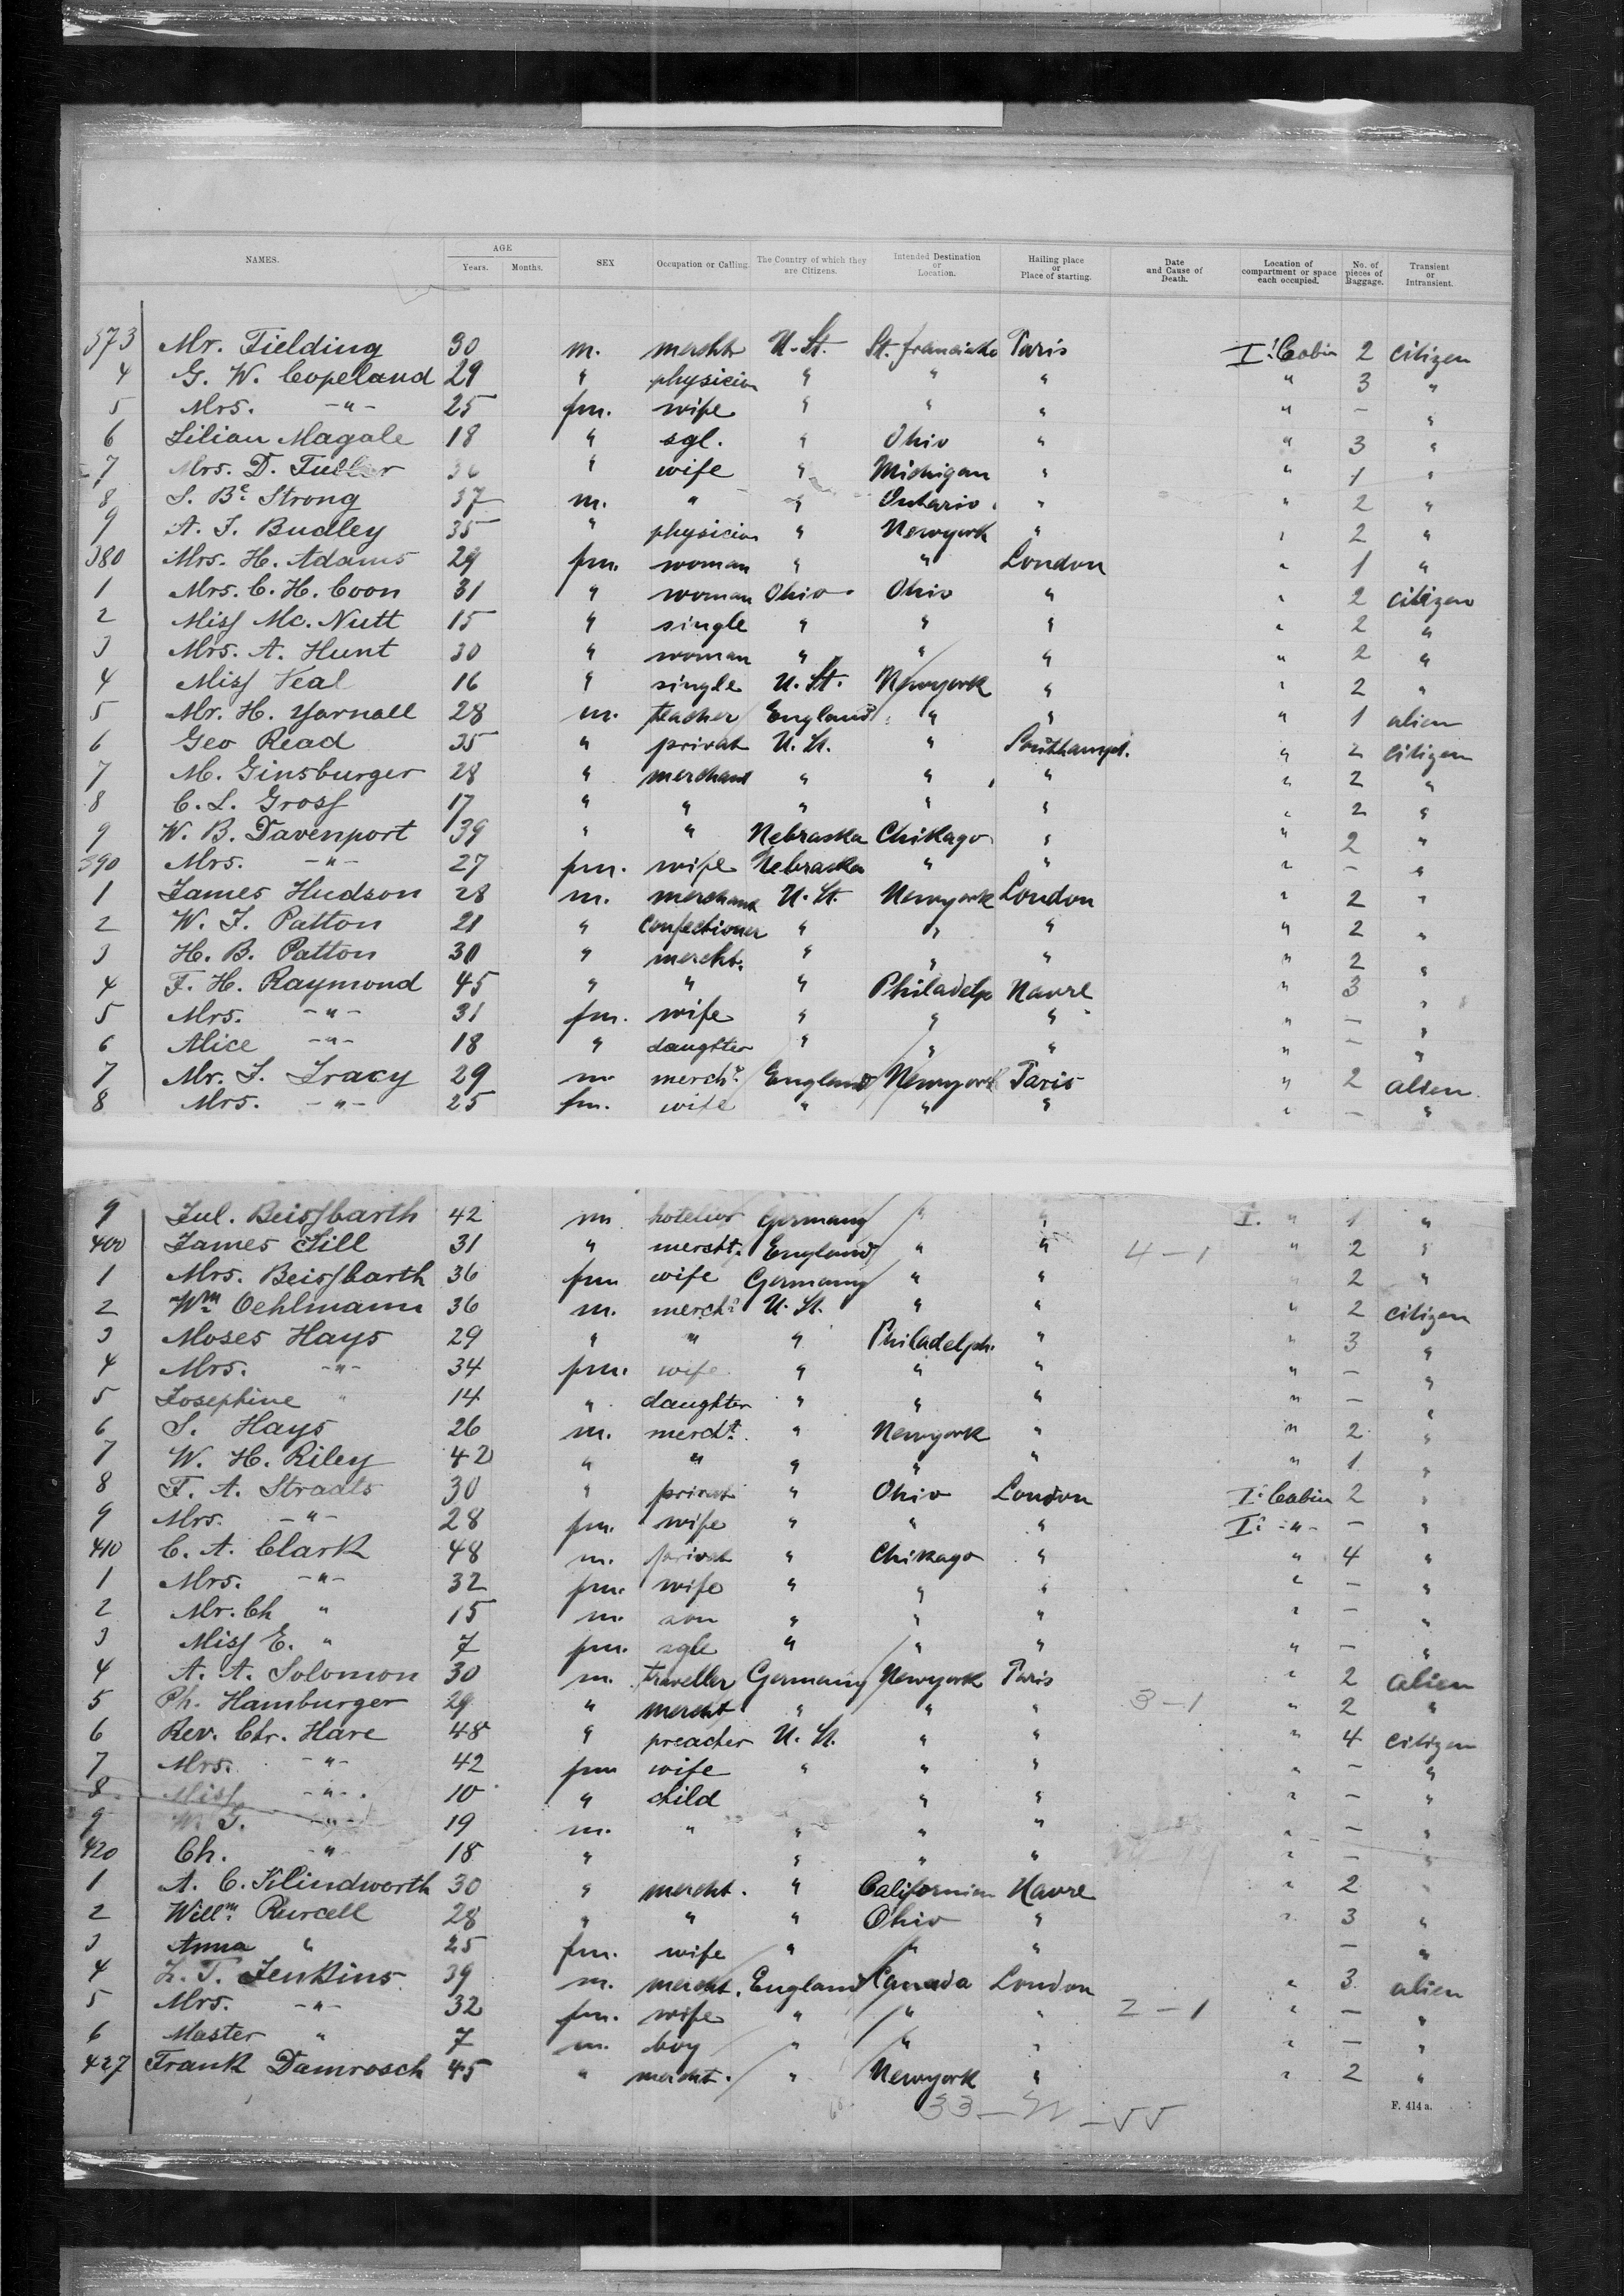 NAMES. AGE Years. Months. SEX Occupation or Calling. The Country of which they are Citizens. Intended Destination or Location. Hailing place or Place of starting. Date and Cause of Death. Location of compartment or space each occupied. No. of pieces of Baggage. Transient or Intransient.
373 Mr. Fielding 30 m. mercht U. St. St. Francisko Paris I. Cabin 2 citizen
4 G. W. Copeland 29 " physician " " " " 3 "
5 Mrs. -"- 25 fm. wife " " " " – "
6 Lilian Magale 18 " sgl. " Ohio " " 3 "
7 Mrs. D. 36 " wife " Michigan " " 1 "
8 S. Be. Strong 37 m. " " Ontario " " 2 "
9 A. J. Budley 35 " physician " Newyork " " 2 "
380 Mrs. H. Adams 29 fm. woman " " London " 1 "
1 Mrs. C. H. Coon 31 " woman Ohio Ohio " " 2 citizen
2 Miss Mc. Nutt 15 " single " " " " 2 "
3 Mrs. A. Hunt 30 " woman " " " " 2 "
4 Miss Veal 16 " single U. St. Newyork " " 2 "
5 Mr. H. Yarnall 28 m. teacher England " " " 1 alien
6 Geo Read 35 " privat U. St. " Southampt. " 2 citizen
7 M. Ginsburger 28 " merchant " " " " 2 "
8 C. L. Gross 17 " " " " " " 2 "
9 W. B. Davenport 39 " " Nebraska Chikago " " 2 "
390 Mrs. -"- 27 fm. wife Nebraska " " " – "
1 James Hudson 28 m. merchant U. St. Newyork London " 2 "
2 W. J. Patton 21 " confectioner " " " " 2 "
3 H. B. Patton 30 " mercht. " " " " 2 "
4 F. H. Raymond 45 " " " Philadelp Havre " 3 "
5 Mrs. -"- 31 fm. wife " " " " – "
6 Alice -"- 18 " daughter " " " " – "
7 Mr. J. Tracy 29 m. mercht. England Newyork Paris " 2 alien
8 Mrs. -"- 25 fm. wife " " " " – "
9 Jul. Beissbarth 42 m hotelier Germany " " I. " 1 "
400 James Hill 31 " mercht. England " " 4 – 1 " 2 "
1 Mrs. Beissbarth 36 fm wife Germany " " " 2 "
2 Wm. Oehlmann 36 m. mercht. U. St. " " " 2 citizen
3 Moses Hays 29 " " " Philadelph. " " 3 "
4 Mrs. -"- 34 fm. wife " " " " – "
5 Josephine " 14 " daughter " " " " – "
6 S. Hays 26 m. mercht. " Newyork " " 2 "
7 W. H. Riley 42 " " " " " " 1 "
8 F. A. Straats 30 " privat " Ohio London I. Cabin 2 "
9 Mrs. -"- 28 fm. wife " " " I. -"- – "
410 C. A. Clark 48 m. privat " Chikago " " 4 "
1 Mrs. -"- 32 fm. wife " " " " – "
2 Mr. Ch " 15 m. son " " " " – "
3 Miss E. " 7 fm. sgle " " " " – "
4 A. A. Solomon 30 m. traveller Germany Newyork Paris " 2 alien
5 Ph. Hamburger 29 " mercht " " " 3 – 1 " 2 "
6 Rev. Chr. Hare 48 " preacher U. St. " " " 4 citizen
7 Mrs. -"- 42 fm wife " " " " – "
8 Miss -"- 10 " child " " " – "
9 W. J. -"- 19 m. " " " " " – "
420 Ch. " 18 " " " " " – "
1 A. C. Klindworth 30 " mercht. " Californien Havre " 2 "
2 Willm. Purcell 28 " " " Ohio " " 3 "
3 Anna " 25 fm. wife " " " – "
4 L. T. Jenkins 39 m. mercht. England Canada London " 3 alien
5 Mrs. -"- 32 fm. wife " " " 2 – 1 " – "
6 Master " 7 m. boy " " " " – "
427 Frank Damrosch 45 " mercht. " Newyork " " 2 "
33 –
F. 414 a.